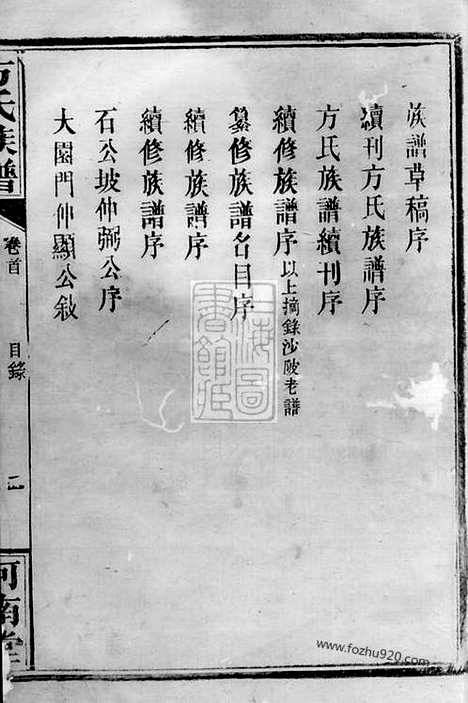 族譜草稿序
續刊方氏族譜序
方氏族譜續刊序
續修族譜序以上摘錄沙陂老譜
纂修族譜名目序
續修族譜序
續修族譜序
石公坡仲弼公序
大園門仲顯公敍
方氏族譜
卷首
目錄
二
河南堂
上海圖書館藏
www.fozhu920.com